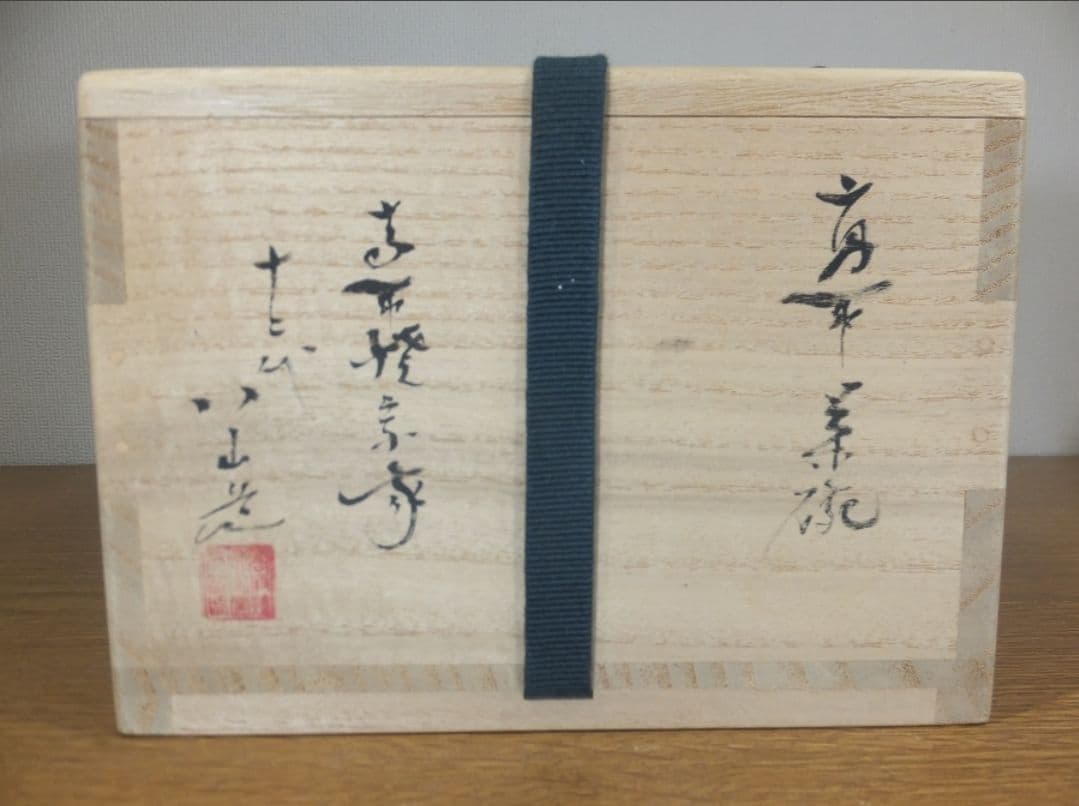 髙取茶碗
高取焼宗家
十二代
八山造